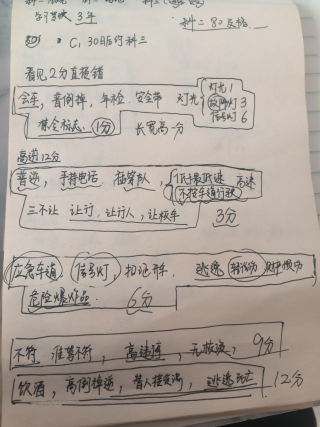 学习驾驶 3年
科二 80及格
C1 30日后约科三
看见2分直接错
会车，普倒掉，年检，安全带 灯光
灯光 1
故障灯 3
信号灯 6
禁令标志 1分 长宽高一分
高速12分
普逆，手持电话 插穿队，低于最低速 高速
不按车道行驶
三不让 让行，让行人，让校车 3分
应急车道 信号灯，扣记
逃逸
危险爆炸品 6分
不符 准驾不符，高速停，无故 9分
饮酒，高倒掉逆，替人接受处，逃逸死亡 12分